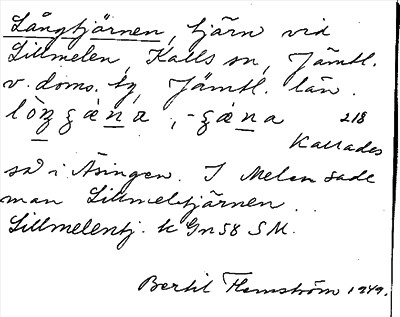 Långtjärnen, tjärn vid
Lillmelen, Kalls sn, Jämtl.
v. doms. hg, Jämtl. län.
218
Kallades
så i Äsingen. I Melen sade
man Lillmeltjärnen.
Lillmelentj. k Gn58 SM.
Bertil Flemström 1949.